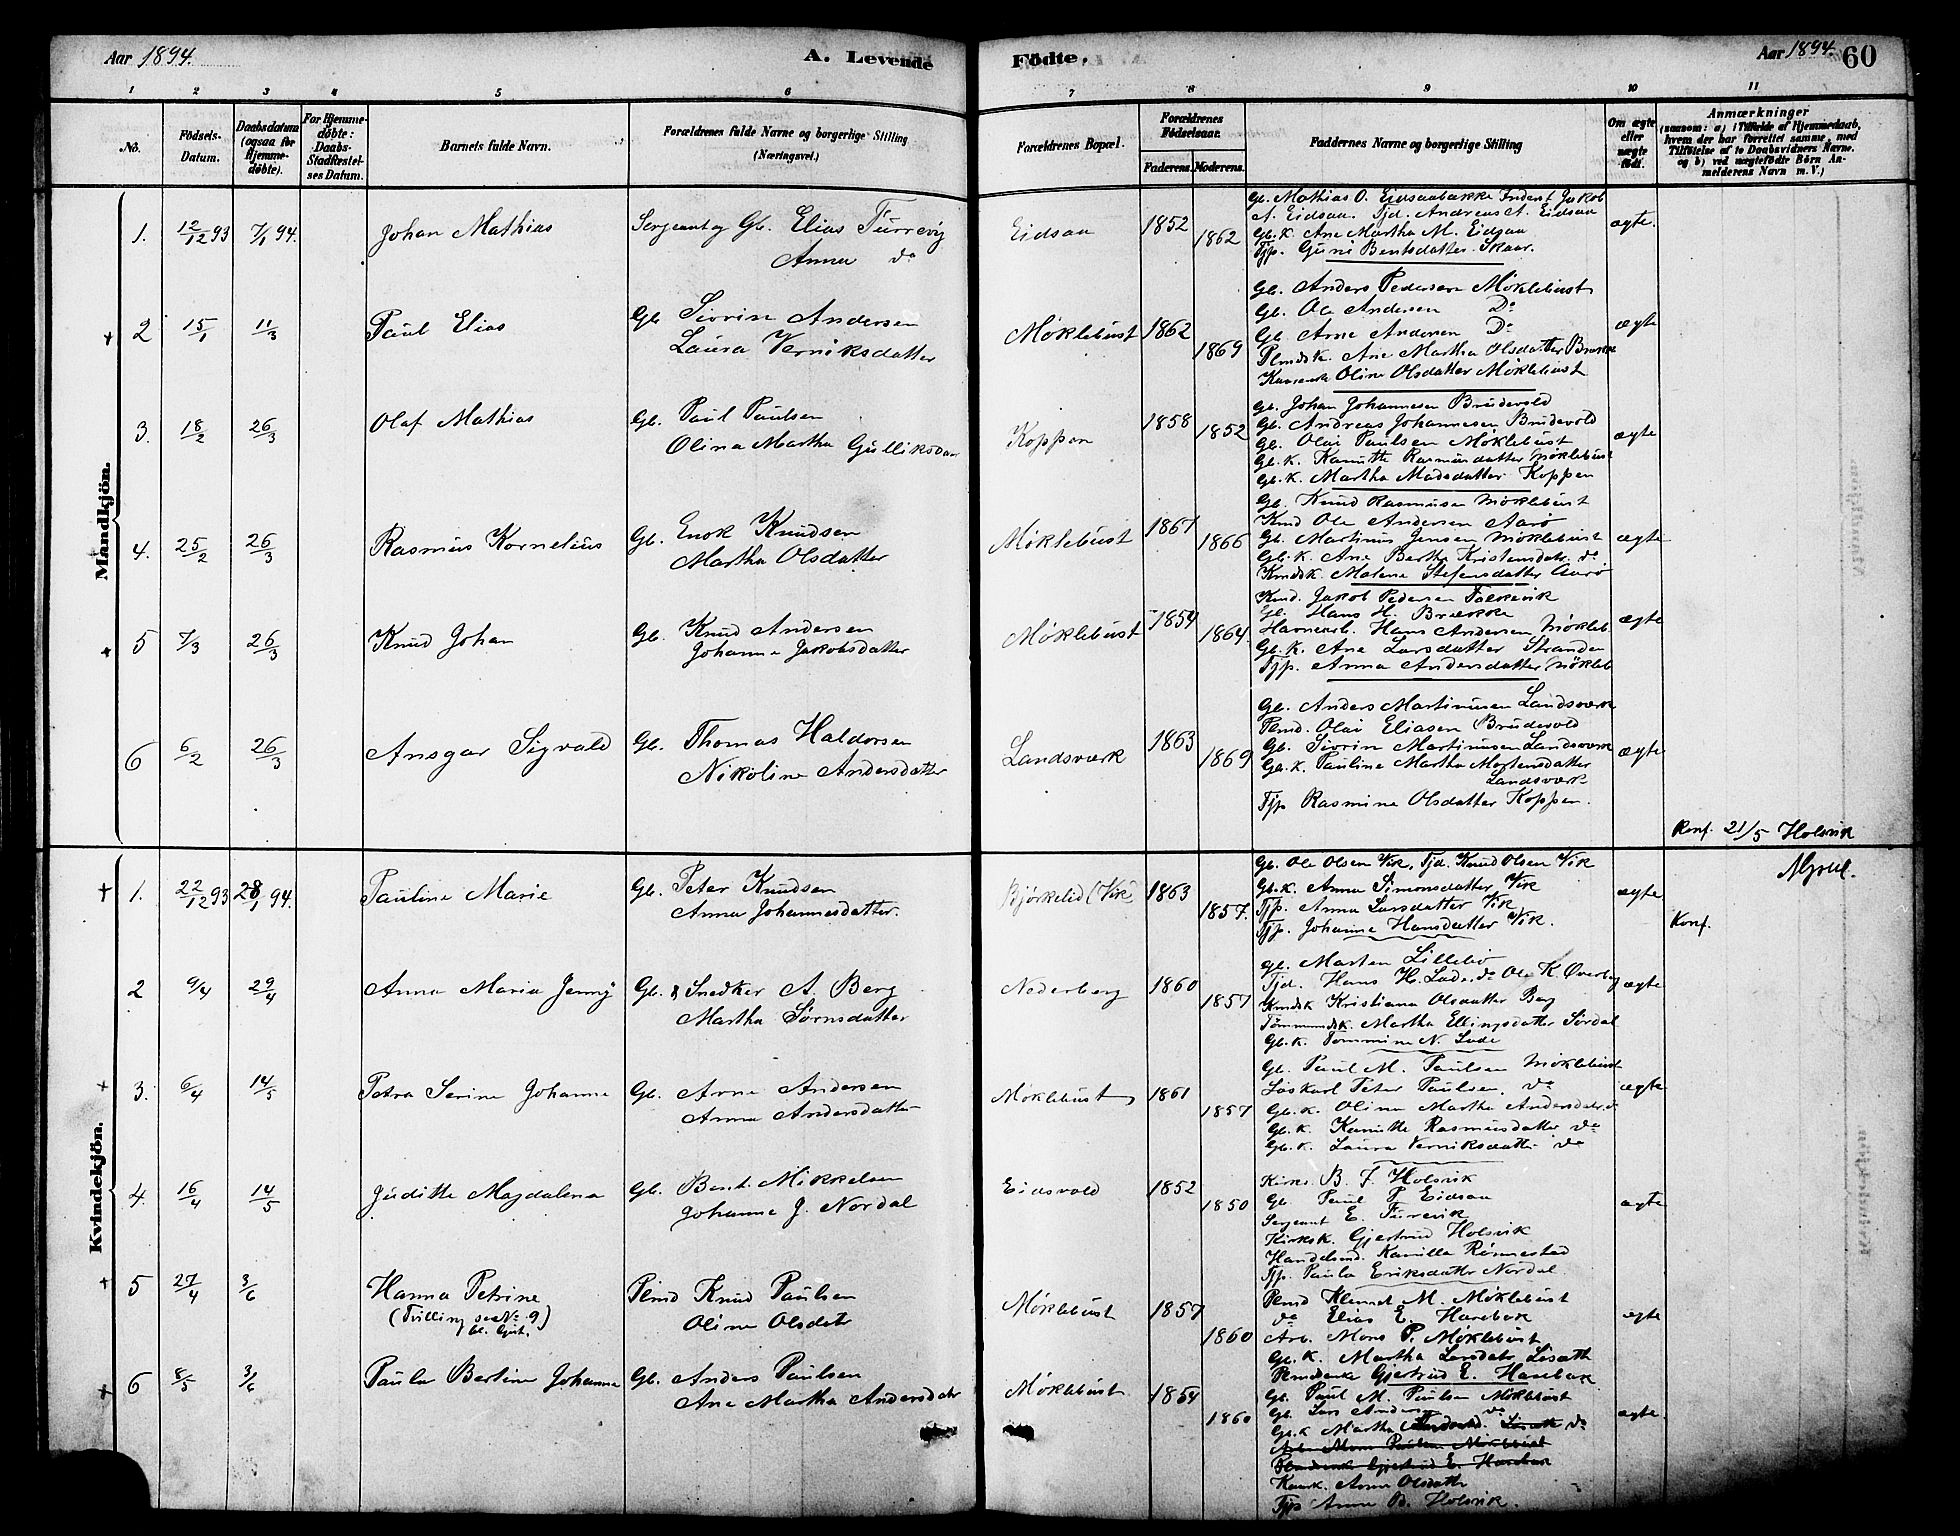 Aar 1894.
A. Levende Fødte.
Aar 1894. 60
1 2 3 4 5 6 7 8 9 10 11
No.
Fødsels-Datum.
Daabsdatum (ogsaa for Hjemmedøbte).
For Hjemmedøbte: Daabs-Stadfæstelses Datum.
Barnets fulde Navn.
Forældrenes fulde Navne og borgerlige Stilling (Næringsvei.)
Forældrenes Bopæl.
Forældrenes Fødselsaar.
Faderens. Moderens.
Faddernes Navne og borgerlige Stilling
Om ægte eller uægte født.
Anmærkninger
(saasom: a) i Tilfælde af Hjemmedaab, hvem der har forrettet samme, med Tilføielse af to Daabsvidners Navne, og b) ved uægtefødte Børn Anmelderens Navn m. V.)
Mandkjön.
1. 12/12 93 7/1 94. Johan Mathias
Sergeant og Gb. Elias Furrevig
Anna do
Eidsaa 1852 1862
Gb. Mathias O. Eidsaabakke Inderst Jakob
A. Eidsaa. Tjd. Andreas A. Eidsaa
Gb.k. Ane Martha M. Eidsaa
Tjp. Guni Bentsdatter Skaar.
ægte.
2 15/1 11/3 Paul Elias
Gb. Sivrin Andersen
Laura Verniksdatter
Møklebust 1862 1869
Gb. Anders Pedersen Møklebust
Gb. Ole Andersen Do
Gb. Arne Andersen Do
Plmdsk. Ane Martha Olsdatter
Oline Olsdatter Møklebust
ægte
3. 18/2 26/3 Olaf Mathias
Gb. Paul Paulsen
Olina Martha Gulliksdatr
Koppen 1858 1852
Gb. Johan Johannesen Brudevold
Gb. Andreas Johannesen Brudevold
Gb. Olai Paulsen Møklebust
Gb.k. Kanutte Rasmusdatter Møklebust
Gb.k. Martha Madsdatter Koppen
ægte
4. 25/2 26/3 Rasmus Kornelius
Gb. Enok Knudsen
Martha Olsdatter
Møklebust 1867 1866
Gb. Knud Rasmusen Møklebust
Kmd Ole Andersen Aarø
Gb. Martinus Jensen Møklebust
Gb.k. Ane Bertha Kristensdatr. do
Kmdsk. Malene Stefensdatter Aarø
ægte
5 7/3 26/3 Knud Johan
Gb. Knud Andersen
Johanne Jakobsdatter
Møklebust 1854 1864.
Kmd. Jakob Pedersen Falkevik
Gb. Hans H. Brække
Havnearb. Hans Andersen Møkleb
Gb.k. Ane Larsdatter Stranden
Tjp. Anna Andersdatter Mökleb
ægte
6 6/2 26/3 Ansgar Sigvald
Gb. Thomas Haldorsen
Nikoline Andersdatter
Landsværk 1863 1869
Gb. Anders Martinusen Landsværk
Plmd. Olai Eliasen Brudevold
Gb. Sivrin Martinusen Landsværk
Gb.k. Pauline Martha Mortensdatter
Landsværk
Tjp Rasmine Olsdatter Koppen.
ægte
Konf. 21/5 Holsvik
Kvindekjön.
1. 22/12 93 28/1 94. Pauline Marie
Gb. Peter Knudsen
Anna Johannesdatter.
Bjørkelid (Vik) 1863 1857.
Gb. Ole Olsen Vik, Tjd. Knud Olsen Vik
Gb.k. Anna Simonsdatter Vik
Tjp. Anna Larsdatter Vik
Tjp. Johanne Hansdatter Vik.
ægte
Konf.
2 9/4 29/4 Anna Maria Jenny
Gb. & Snedker A. Berg
Martha Sørnsdatter
Nederberg 1860 1857
Gb. Morten Lillebø
Tjd. Hans H. Lade do Ole K. Øverberg
Kmdsk Kristiana Olsdatter Berg
Martha Ellingsdatter Sørdal
Gb.k. Tommine N. Lade
ægte
3. 6/4 14/5 Petra Serine Johanne
Gb. Arne Andersen
Anna Andersdatter
Møklebust 1861 1857
Gb. Paul M. Paulsen Møklebust
Løskarl Peter Paulsen do
Gb.k. Olina Martha Andersdatr. do
Gb.k. Kanitte Rasmusdatter do
Gb.k. Laura Verniksdatter do
ægte
4. 16/4 14/5 Juditte Magdalena
Gb. Bent Mikkelsen
Johanne J. Nordal
Eidsvold 1852 1850
Kirks. B. J. Holsvik
Gb. Paul P. Eidsaa
Sergeant E. Furevik
Kirksk. Gjertrud Holsvik
Handelsmd. Kamilla Rønnestad
Tjp. Paula Eriksdatter Nordal.
ægte
5 27/4 3/6 Hanna Petrine
(Tvilling se No 9)
Plmd Knud Paulsen
Oline Olsdatr
Møklebust 1857 1860
Plmd Klemet M. Møklebust
do Elias E. Hareback
Arb. Mons P. Møklebust
Gb.k. Martha Larsdatr
Gjertrud E. Hareback
ægte
6 8/5 3/6 Paula Bertine Johanne
Gb. Anders Paulsen
Ane Martha Andersdatr
Møklebust 1854 1860
Gb. Paul M. Paulsen Møklebust
Gb. Lars Andersen do
Gb.k. Martha do
Mons Paulsen Møklebust
Gjertrud E. Hareback
Anna Olsdatter
Tjp Anna B. Holsvik.
ægte.